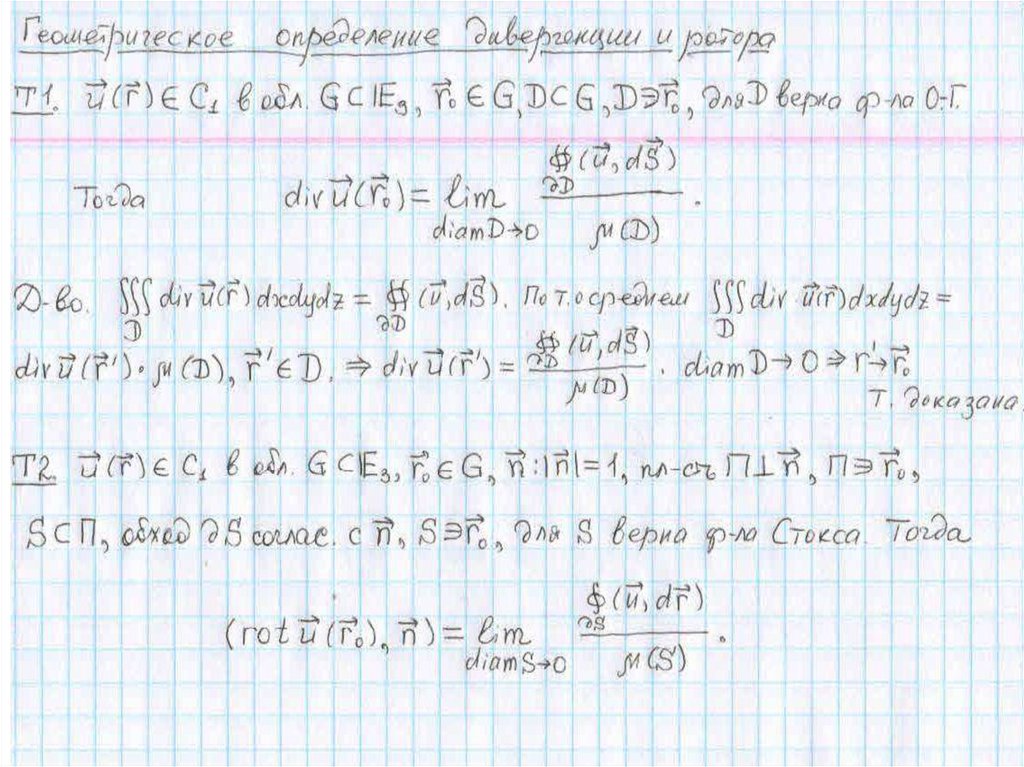 Геометрическое определение дивергенции и ротора
Т1. u⃗(r⃗) ∈ C₁ в обл. G⊂E₃, r⃗₀ ∈ G, D⊂G, D∋r⃗₀, для D верна ф-ла О.-Г.
Тогда div u⃗(r⃗₀) = lim_{diam D→0} ∯_{∂D} (u⃗, dS⃗) / μ(D).
Д-во. ∭_D div u⃗(r⃗) dxdydz = ∯_{∂D} (u⃗, dS⃗). По т. о среднем ∭_D div u⃗(r⃗) dxdydz =
div u⃗(r⃗')·μ(D), r⃗' ∈ D. ⇒ div u⃗(r⃗') = ∯_{∂D} (u⃗, dS⃗) / μ(D). diam D → 0 ⇒ r⃗' → r⃗₀
Т. доказана
Т2. u⃗(r⃗) ∈ C₁ в обл. G⊂E₃, r⃗₀ ∈ G, n⃗: |n⃗| = 1, пл-сть П⊥n⃗, П∋r⃗₀,
S⊂П, обход ∂S соглас. с n⃗, S∋r⃗₀, для S верна ф-ла Стокса. Тогда
(rot u⃗(r⃗₀), n⃗) = lim_{diam S→0} ∮_{∂S} (u⃗, dr⃗) / μ(S).